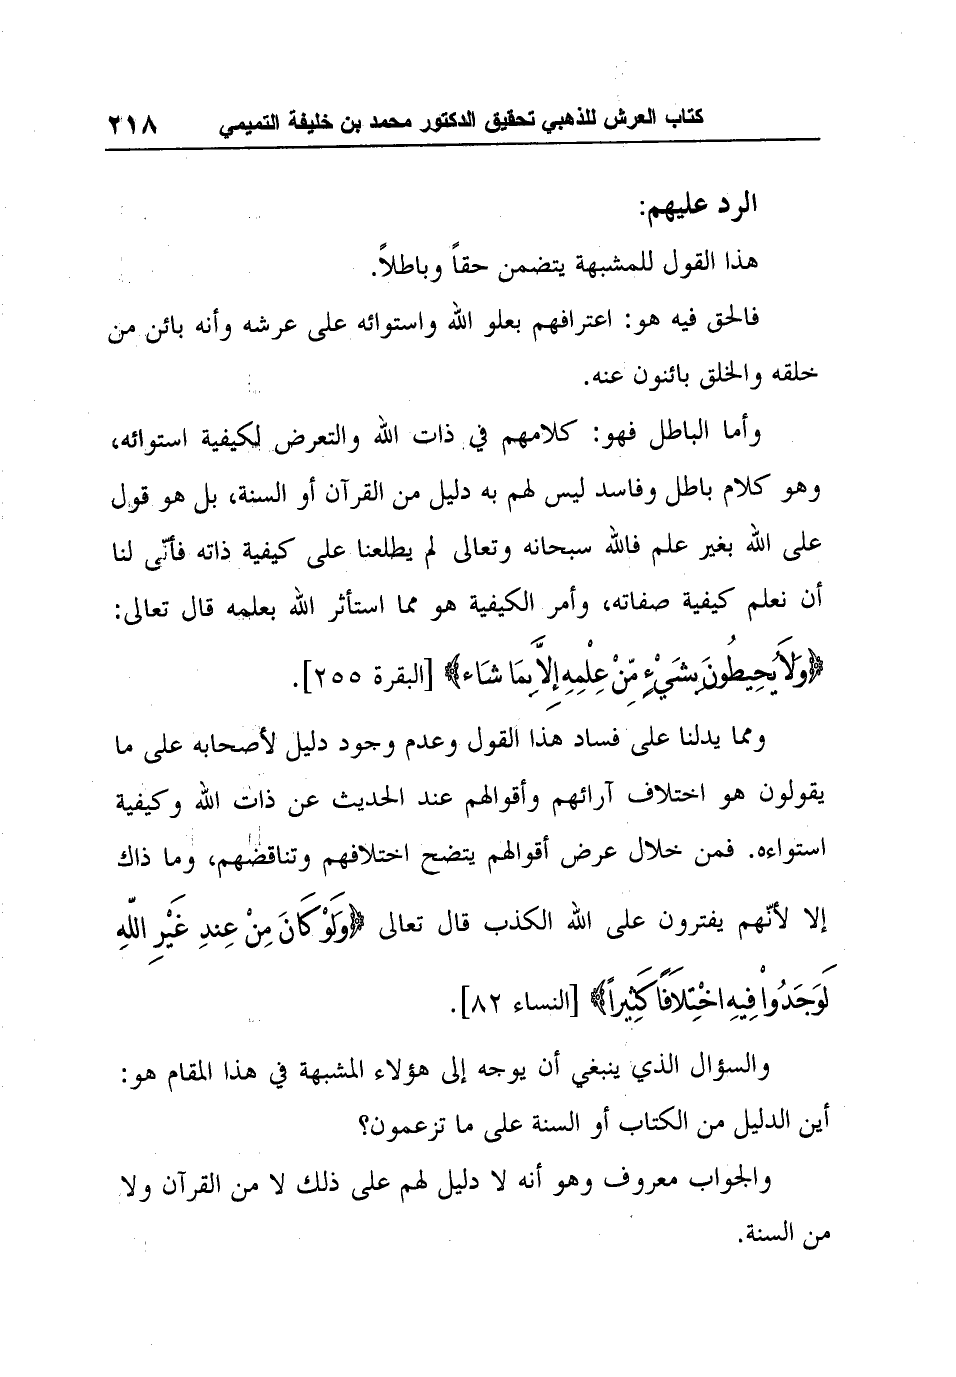 كتاب العرش للذهبي تحقيق الدكتور محمد بن خليفة التميمي ٢١٨
الرد عليهم:
هذا القول للمشبهة يتضمن حقاً وباطلاً.
فالحق فيه هو: اعترافهم بعلو الله واستوائه على عرشه وأنه بائن من
خلقه والخلق بائنون عنه.
وأما الباطل فهو: كلامهم في ذات الله والتعرض لكيفية استوائه،
وهو كلام باطل وفاسد ليس لهم به دليل من القرآن أو السنة، بل هو قول
على الله بغير علم فالله سبحانه وتعالى لم يطلعنا على كيفية ذاته فأنّى لنا
أن نعلم كيفية صفاته، وأمر الكيفية هو مما استأثر الله بعلمه قال تعالى:
﴿وَلَا يُحِيطُونَ بِشَيْءٍ مِّنْ عِلْمِهِ إِلاَّ بِمَا شَاء﴾ [البقرة ٢٥٥].
ومما يدلنا على فساد هذا القول وعدم وجود دليل لأصحابه على ما
يقولون هو اختلاف آرائهم وأقوالهم عند الحديث عن ذات الله وكيفية
استواءه. فمن خلال عرض أقوالهم يتضح اختلافهم وتناقضهم، وما ذاك
إلا لأنّهم يفترون على الله الكذب قال تعالى ﴿وَلَوْ كَانَ مِنْ عِندِ غَيْرِ اللّهِ
لَوَجَدُواْ فِيهِ اخْتِلَافًا كَثِيراً﴾ [النساء ٨٢].
والسؤال الذي ينبغي أن يوجه إلى هؤلاء المشبهة في هذا المقام هو:
أين الدليل من الكتاب أو السنة على ما تزعمون؟
والجواب معروف وهو أنه لا دليل لهم على ذلك لا من القرآن ولا
من السنة.